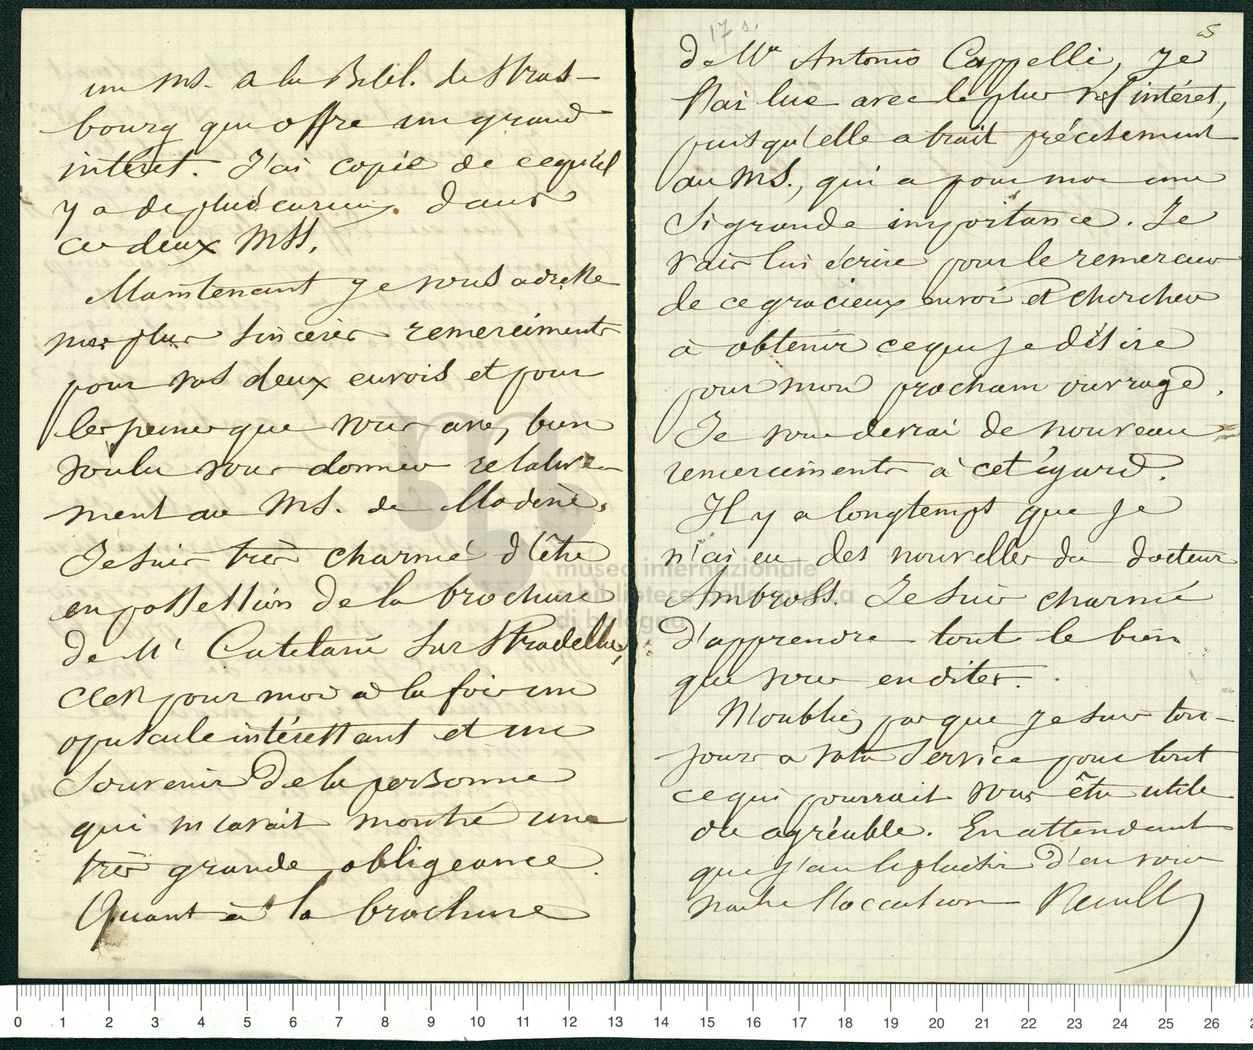 un ms. a la Bibl. de Stras-
bourg qui offre un grand
intérêt. J'ai copié de ce qu'il
y a de plus curieux dans
ces deux MSS.
Maintenant je vous adresse
mes plus sincères remerciments
pour vos deux envois et pour
les peines que vous avez bien
voulu vous donner relative-
ment au MS. de Modène.
Je suis très charmé d'être
en possession de la brochure
de Mr Catelani sur Stradella,
c'est pour moi à la fois un
opuscule intéressant et un
souvenir de la personne
qui m'avait montré une
très grande obligeance.
Quant à la brochure
17 s.
5
de Mr Antonio Cappelli, je
l'ai lue avec le plus vif intérêt,
puisqu'elle a trait précisément
au MS., qui a pour moi une
si grande importance. Je
vais lui écrire pour le remercier
de ce gracieux envoi et chercher
à obtenir ce que je désire
pour mon prochain ouvrage.
Je vous devrai de nouveau
remerciments à cet égard.
Il y a longtemps que je
n'ai eu des nouvelles du docteur
Ambros. Je suis charmé
d'apprendre tout le bien
que vous en dites.
N'oubliez pas que je suis tou-
jours a votre service pour tout
ce qui pourrait vous être utile
ou agréable. En attendant
que j'aie le plaisir d'en voir
naître l'occasion
museo internazionale
e biblioteca della musica
di bologna
0 1 2 3 4 5 6 7 8 9 10 11 12 13 14 15 16 17 18 19 20 21 22 23 24 25 26